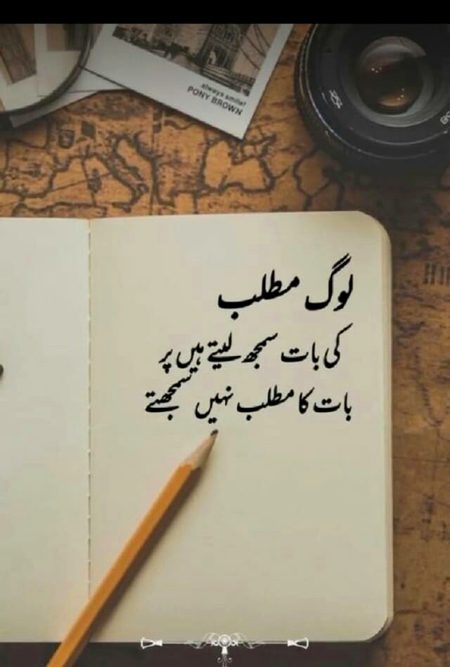 always smile!
PONY BROWN
لوگ مطلب
کی بات سمجھ لیتے ہیں پر
بات کا مطلب نہیں سمجھتے